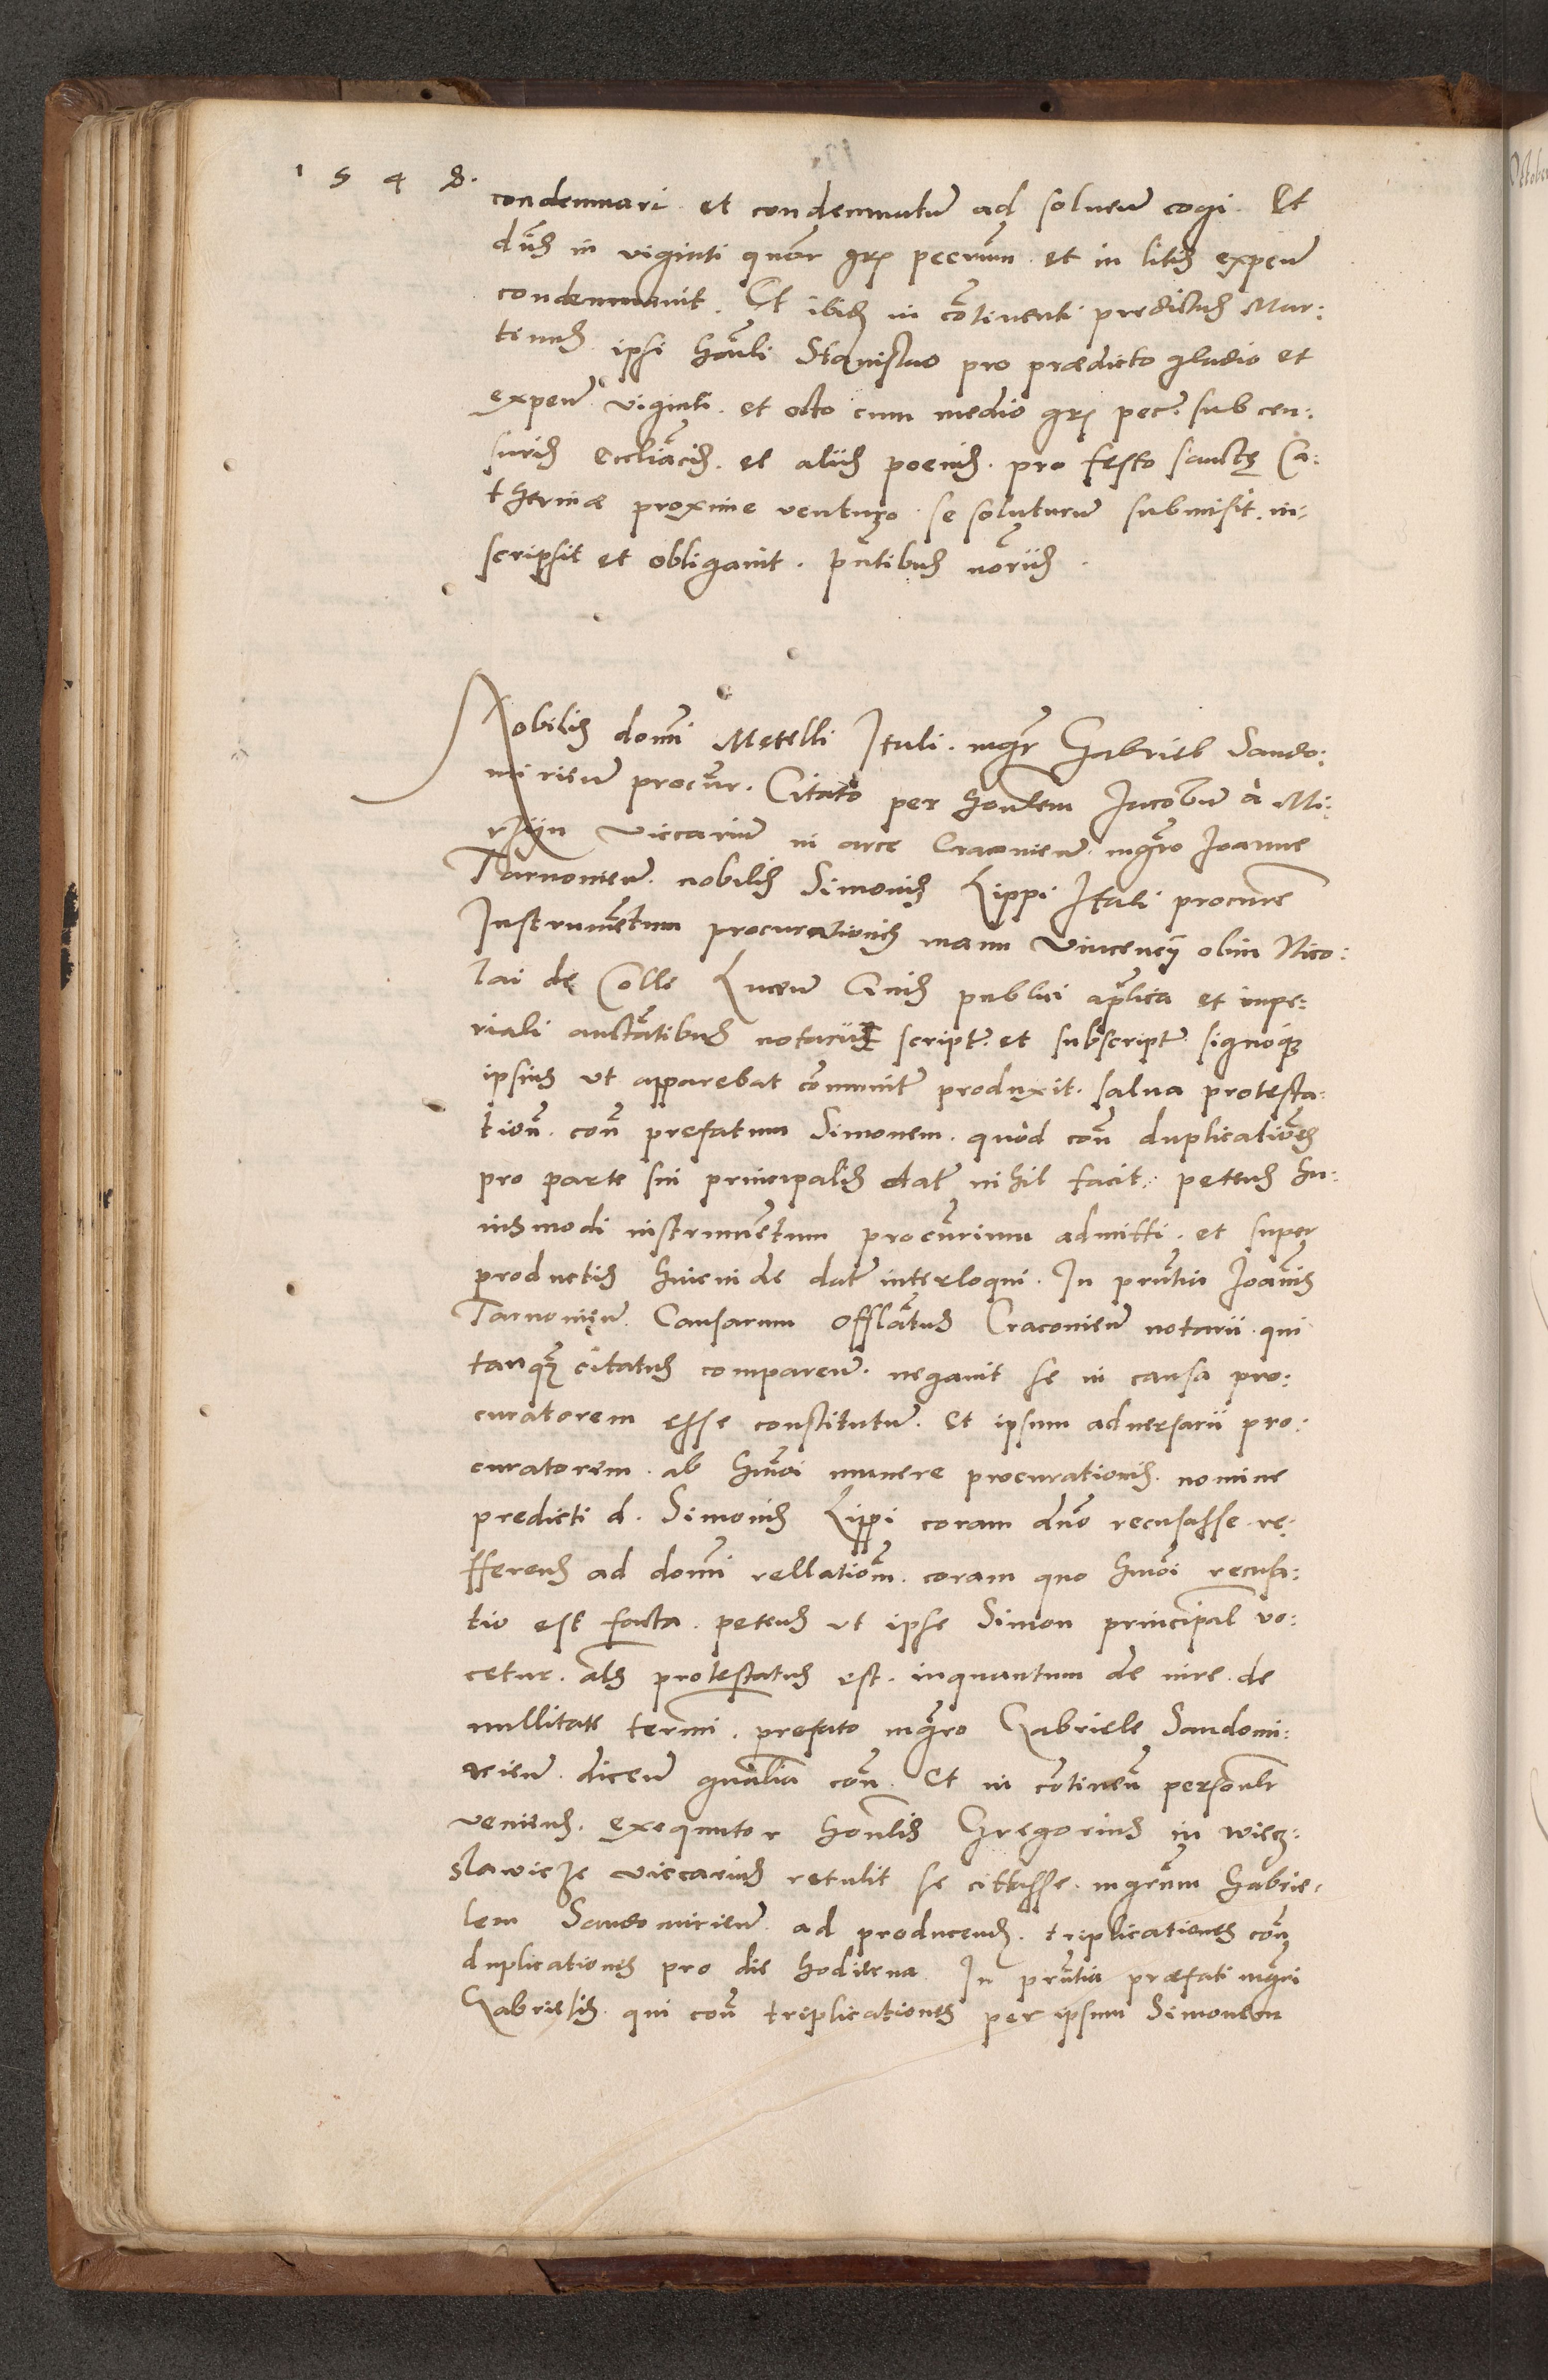 1 5 4 8.
condemnari et condemnatu͂ ad solven͂ cogi. Et
dn͂s in viginti quo͂r gr pecu͂m et in litis expen͂
condemnavit. Et ibid͂ in co͂tinenti predictus Mar:
tinus ipsi hon͂li Stanislao pro prædicto gladio et
expen͂ viginti et octo cum medio gr pec͂. sub cen:
suris eccl͂iacis et aliis poenis pro festo sanctę Ca:
therinæ proxime venturo se soluturu͂ submisit. in:
scripsit et obligavit. p͂ntibus no͂riis.
Nobilis dom͂i Metelli Itali. mg͂r Gabriel Sando:
mirien͂ procu͂r. Citato per hon͂lem Jacobu͂ à Mi:
rzyn viccariu͂ in arce Cracovien͂ mg͂ro Joanne
Tarnovien͂. nobilis Simonis Lippi Itali procur͂e
Instrume͂tum procurationis manu Vincency olim Nico:
lai de Colle Lucen͂ Civis publici ap͂lica et impe:
riali aucta͂tibus notarii script͂. et subscript͂ signoq;
ipsius ut apparebat com͂unit͂ produxit. salva protesta:
tion͂. con͂ prefatum Simonem. quòd con͂ duplicatio͂es
pro parte sui principalis dat͂ nihil facit. petens hu:
iusmodi instrume͂tum procu͂rium admitti. et super
productis hincinde dat͂ interloqui. In pr͂ntia Joa͂nis
Tarnovien͂ Causarum Offl͂atus Cracovien͂ notarii. qui
tanq͂ citatus comparen͂. negavit se in causa pro:
curatorem esse constitutu͂. Et ipsum adversarii pro:
curatorem. ab hm͂oi munere procurationis nomine
predicti d. Simonis Lippi coram dn͂o recusasse. re:
fferens ad dom͂i rellatio͂m. coram quo hm͂oi recusa:
tio est facta. petens ut ipse Simon principal͂ vo:
cetur. al͂s protestatus est. inquantum de iure. de
nullitate term͂i. prefato mg͂ro Gabriele Sandomi:
rien͂. dicen͂ gn͂alia con͂. Et in co͂tinen͂ person͂lr
veniens. exequutor hon͂lis Gregorius in wiecz:
slawicze viccarius retulit se cittasse. mgr͂um Gabrie:
lem Sandomirien͂. ad producend. triplicationes con͂
duplicationes pro die hodierna. In pr͂ntia præfati mg͂ri
Gabrielis. qui con͂ triplicationes per ipsum Simonem